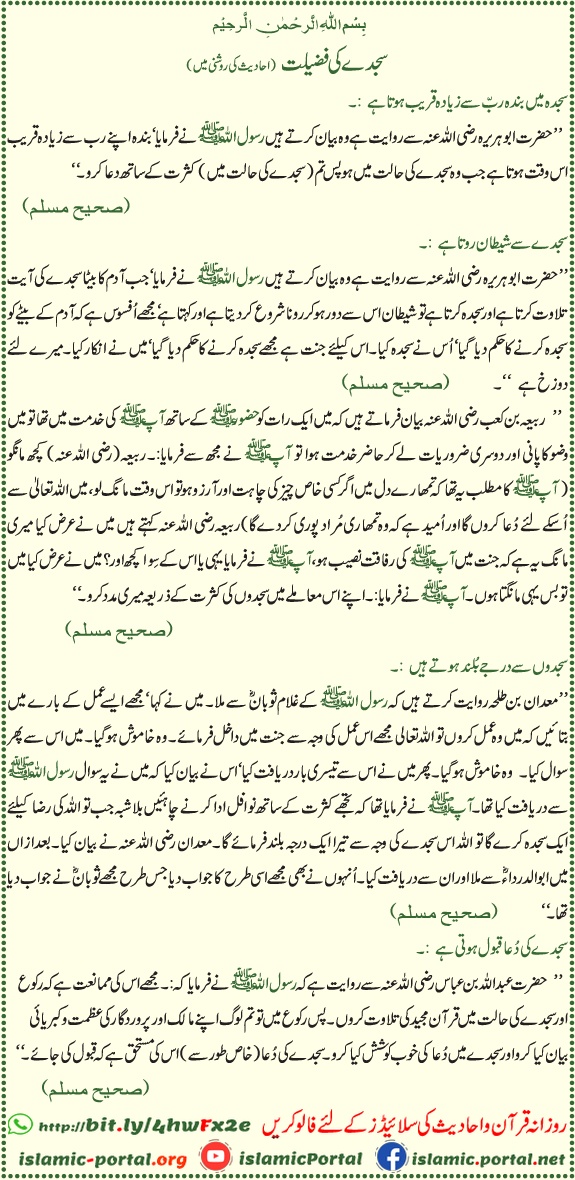 بِسْمِ اللهِ الرَّحْمٰنِ الرَّحِیْمِ
سجدے کی فضیلت (احادیث کی روشنی میں)
سجدہ میں بندہ ربّ سے زیادہ قریب ہوتا ہے :۔
’’حضرت ابو ہریرہ رضی اللہ عنہ سے روایت ہے وہ بیان کرتے ہیں رسول اللہ ﷺ نے فرمایا‘ بندہ اپنے رب سے زیادہ قریب
اس وقت ہوتا ہے جب وہ سجدے کی حالت میں ہو پس تم (سجدے کی حالت میں) کثرت کے ساتھ دعا کرو۔‘‘
(صحیح مسلم)
سجدے سے شیطان روتا ہے :۔
’’حضرت ابو ہریرہ رضی اللہ عنہ سے روایت ہے وہ بیان کرتے ہیں رسول اللہ ﷺ نے فرمایا‘ جب آدم کا بیٹا سجدے کی آیت
تلاوت کرتا ہے اور سجدہ کرتا ہے تو شیطان اس سے دور ہو کر رونا شروع کر دیتا ہے اور کہتا ہے‘ مجھے افسوس ہے کہ آدم کے بیٹے کو
سجدہ کرنے کا حکم دیا گیا‘ اُس نے سجدہ کیا۔ اس کیلئے جنت ہے مجھے سجدہ کرنے کا حکم دیا گیا‘ میں نے انکار کیا۔ میرے لئے
دوزخ ہے ‘‘۔ (صحیح مسلم)
’’ ربیعہ بن کعب رضی اللہ عنہ بیان فرماتے ہیں کہ میں ایک رات کو حضور ﷺ کے ساتھ آپ ﷺ کی خدمت میں تھا تو میں
وضو کا پانی اور دوسری ضروریات لے کر حاضر خدمت ہوا تو آپ ﷺ نے مجھ سے فرمایا:۔ ربیعہ (رضی اللہ عنہ) کچھ مانگو
( آپ ﷺ کا مطلب یہ تھا کہ تمھارے دل میں اگر کسی خاص چیز کی چاہت اور آرزو ہو تو اس وقت مانگ لو، میں اللہ تعالیٰ سے
اُسکے لئے دُعا کروں گا اور اُمید ہے کہ وہ تمھاری مُراد پوری کر دے گا) ربیعہ رضی اللہ عنہ کہتے ہیں میں نے عرض کیا میری
مانگ یہ ہے کہ جنت میں آپ ﷺ کی رفاقت نصیب ہو، آپ ﷺ نے فرمایا یہی یا اس کے سوا کچھ اور؟ میں نے عرض کیا میں
تو بس یہی مانگتا ہوں۔ آپ ﷺ نے فرمایا:۔ اپنے اس معاملے میں سجدوں کی کثرت کے ذریعہ میری مدد کرو۔‘‘
(صحیح مسلم)
سجدوں سے درجے بُلند ہوتے ہیں :۔
’’معدان بن طلحہ روایت کرتے ہیں کہ رسول اللہ ﷺ کے غلام ثوبانؓ سے ملا۔ میں نے کہا‘ مجھے ایسے عمل کے بارے میں
بتائیں کہ میں وہ عمل کروں تو اللہ تعالی مجھے اس عمل کی وجہ سے جنت میں داخل فرمائے۔ وہ خاموش ہو گیا۔ میں اس سے پھر
سوال کیا۔ وہ خاموش ہو گیا۔ پھر میں نے اس سے تیسری بار دریافت کیا‘ اس نے بیان کیا کہ میں نے یہ سوال رسول اللہ ﷺ
سے دریافت کیا تھا۔ آپ ﷺ نے فرمایا تھا کہ تجھے کثرت کے ساتھ نوافل ادا کرنے چاہئیں بلاشبہ جب تو اللہ کی رضا کیلئے
ایک سجدہ کرے گا تو اللہ اس سجدے کی وجہ سے تیرا ایک درجہ بلند فرمائے گا۔ معدان رضی اللہ عنہ نے بیان کیا۔ بعد ازاں
میں ابوالدرداءؓ سے ملا اور ان سے دریافت کیا۔ اُنہوں نے بھی مجھے اسی طرح کا جواب دیا جس طرح مجھے ثوبانؓ نے جواب دیا
تھا۔‘‘ (صحیح مسلم)
سجدے کی دُعا قبول ہوتی ہے :۔
’’ حضرت عبداللہ بن عباس رضی اللہ عنہ سے روایت ہے کہ رسول اللہ ﷺ نے فرمایا کہ:۔ مجھے اس کی ممانعت ہے کہ رکوع
اور سجدے کی حالت میں قرآن مجید کی تلاوت کروں۔ پس رکوع میں تو تم لوگ اپنے مالک اور پروردگار کی عظمت و کبریائی
بیان کیا کرو اور سجدے میں دُعا کی خوب کوشش کیا کرو۔ سجدے کی دُعا (خاص طور سے) اس کی مستحق ہے کہ قبول کی جائے۔‘‘
(صحیح مسلم)
روزانہ قرآن و احادیث کی سلائیڈز کے لئے فالو کریں http://bit.ly/4hwFx2e
islamic-portal.org islamicPortal islamic.portal.net